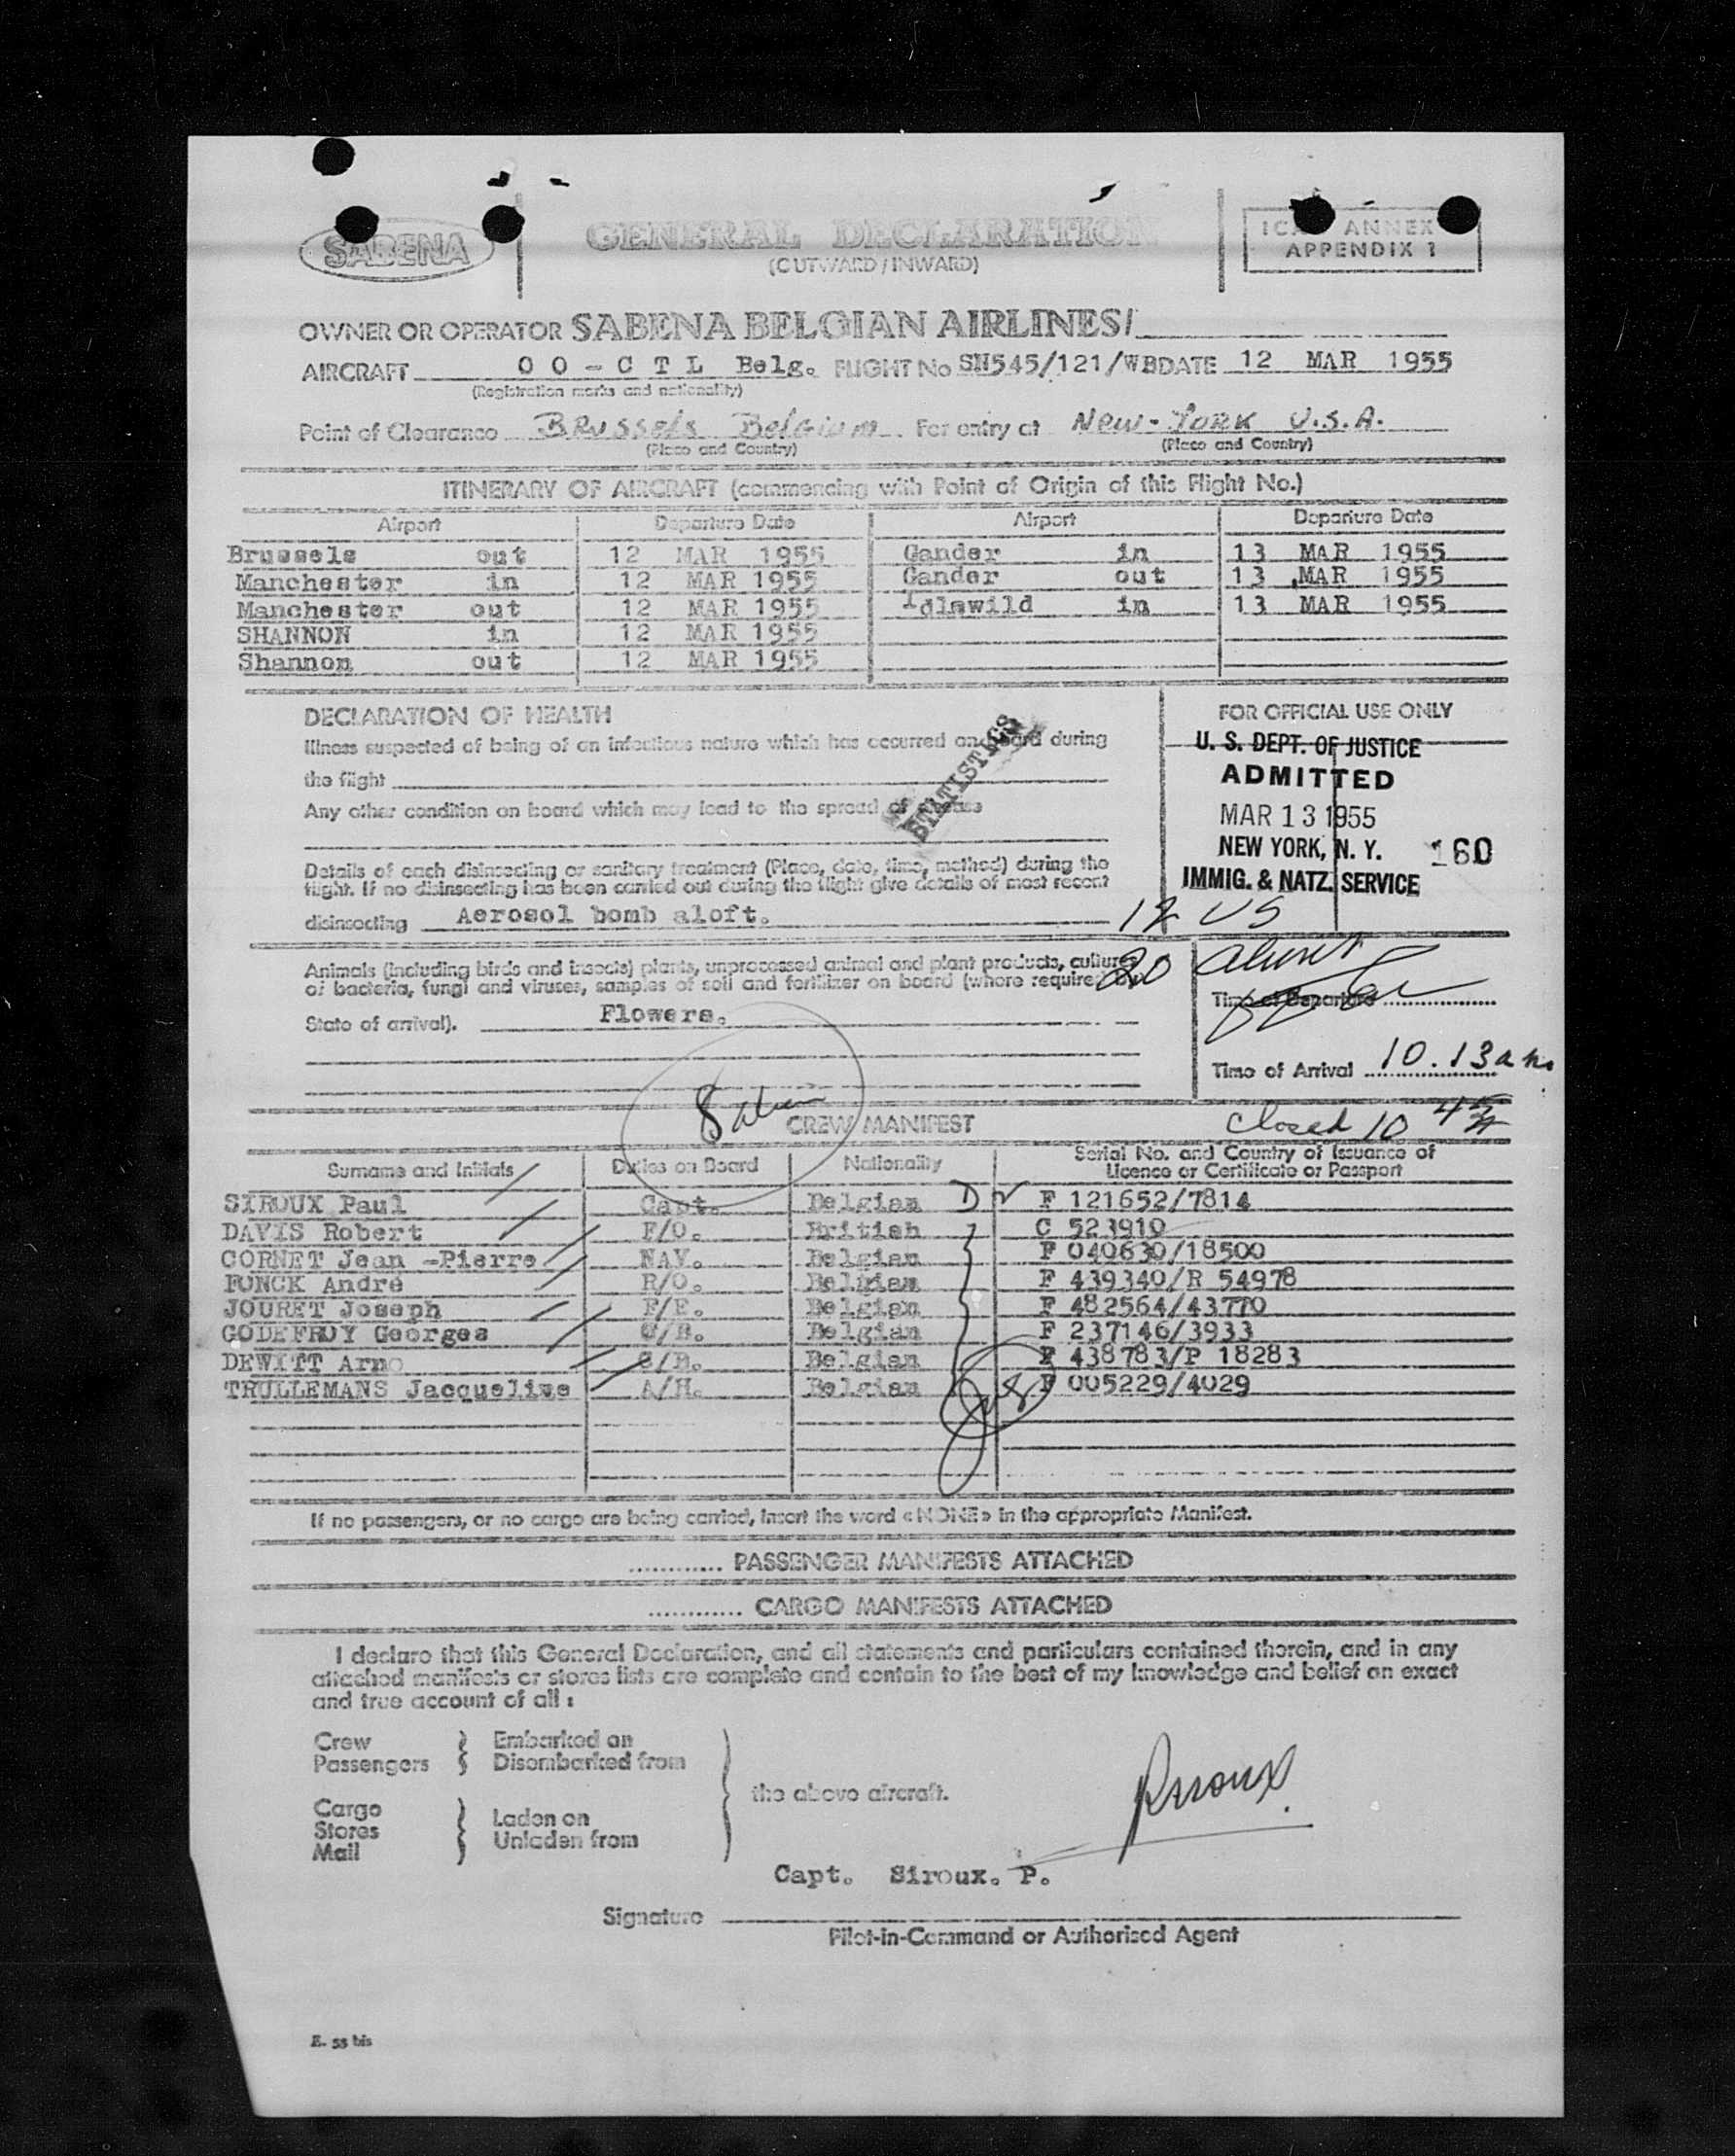 SABENA
GENERAL DECLARATION
(OUTWARD / INWARD)
ANNEX
APPENDIX 1
OWNER OR OPERATOR SABENA BELGIAN AIRLINES
AIRCRAFT O O - C T L Belg. FLIGHT No SN545/121/WB DATE 12 MAR 1955
(Registration marks and nationality)
Point of Clearance Brussels Belgium For entry at New-York U.S.A.
(Place and Country) (Place and Country)
ITINERARY OF AIRCRAFT (commencing with Point of Origin of this Flight No.)
Airport Departure Date Airport Departure Date
Brussels out 12 MAR 1955 Gander in 13 MAR 1955
Manchester in 12 MAR 1955 Gander out 13 MAR 1955
Manchester out 12 MAR 1955 Idlewild in 13 MAR 1955
SHANNON in 12 MAR 1955
Shannon out 12 MAR 1955
DECLARATION OF HEALTH
Illness suspected of being of an infectious nature which has occurred on board during
the flight
Any other condition on board which may lead to the spread of disease
STATISTICS
Details of each disinsecting or sanitary treatment (Place, date, time, method) during the
flight. If no disinsecting has been carried out during the flight give details of most recent
disinsecting Aerosol bomb aloft.
FOR OFFICIAL USE ONLY
U. S. DEPT. OF JUSTICE
ADMITTED
MAR 13 1955
NEW YORK, N. Y. 160
IMMIG. & NATZ. SERVICE
12 US
20
Animals (including birds and insects) plants, unprocessed animal and plant products, cultures
of bacteria, fungi and viruses, samples of soil and fertilizer on board (where required by
State of arrival). Flowers.
Time of Departure
Time of Arrival 10.13am
closed 10
CREW MANIFEST
Surname and Initials Duties on Board Nationality Serial No. and Country of Issuance of
Licence or Certificate or Passport
SIROUX Paul Capt. Belgian F 121652/7814
DAVIS Robert F/O. British C 523910
CORNET Jean -Pierre NAV. Belgian F 040630/18500
FONCK André R/O. Belgian F 439340/R 54978
JOURET Joseph F/E. Belgian F 482564/43770
GODEFROY Georges Belgian F 237146/3933
DEWITT Arno S/B. Belgian F 438783/P 18283
TRULLEMANS Jacqueline A/H. Belgian F 005229/4029
If no passengers, or no cargo are being carried, insert the word «NONE» in the appropriate Manifest.
............ PASSENGER MANIFESTS ATTACHED
............ CARGO MANIFESTS ATTACHED
I declare that this General Declaration, and all statements and particulars contained therein, and in any
attached manifests or stores lists are complete and contain to the best of my knowledge and belief an exact
and true account of all :
Crew Embarked on
Passengers Disembarked from
the above aircraft.
Cargo Laden on
Stores Unladen from
Mail
Capt. Siroux. P.
Signature
Pilot-in-Command or Authorised Agent
E. 55 bis